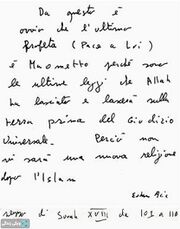 Da questo è
ovvio che l'ultimo
Profeta (Pace a Lui)
è Maometto perché sono
le ultime leggi che Allah
ha lasciato e lascerà sulla
terra prima del Giudizio
Universale. Perciò non
vi sarà una nuova religione
dopo l'Islam
di Surah XVIII da 101 a 110